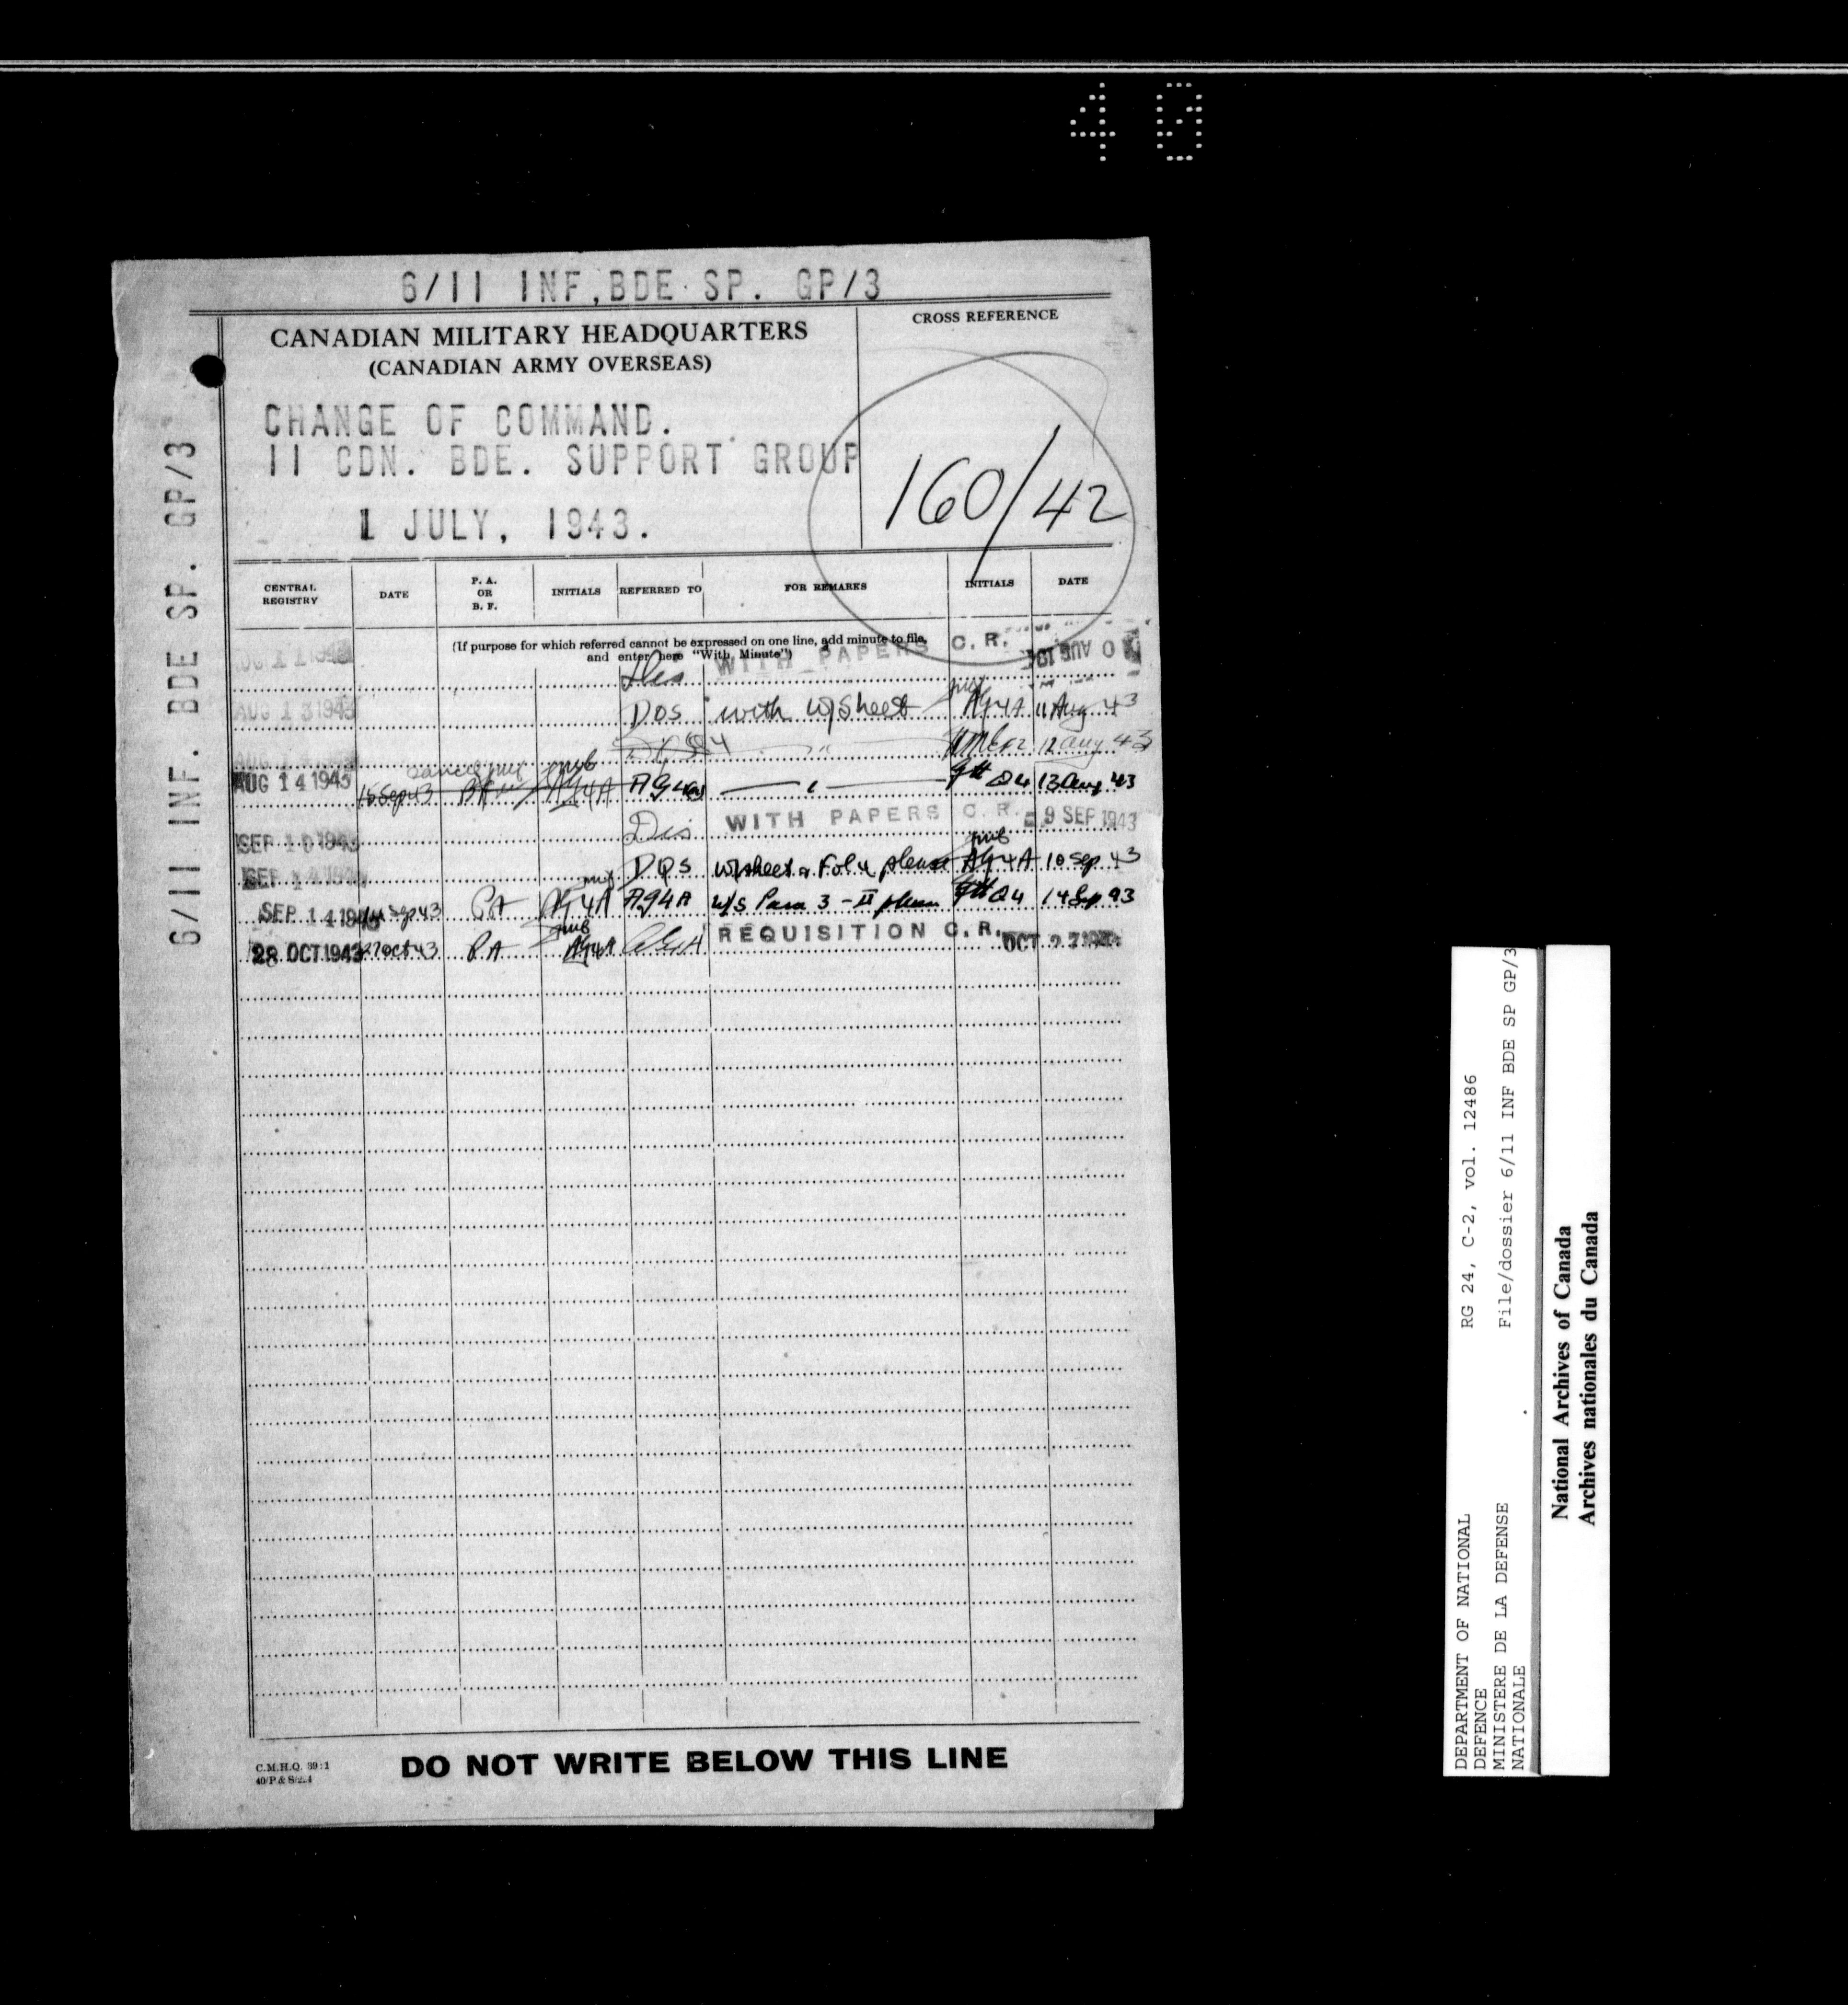 40
6/11 INF. BDE SP. GP/3
CANADIAN MILITARY HEADQUARTERS
(CANADIAN ARMY OVERSEAS)
CROSS REFERENCE
CHANGE OF COMMAND.
11 CDN. BDE. SUPPORT GROUP
1 JULY, 1943.
160/42
6/11 INF. BDE SP. GP/3
CENTRAL REGISTRY DATE P. A. OR B. F. INITIALS REFERRED TO FOR REMARKS INITIALS DATE
(If purpose for which referred cannot be expressed on one line, add minute to file, and enter here "With Minute")
AUG 11 1943 Dis WITH PAPERS C. R. AUG
AUG 13 1943 DOS with w/sheet AG4A 11 Aug 43
12 Aug 43
AUG 14 1943 15 Sep 43 AG4A AG4A 13 Aug 43
SEP 10 1943 Dis WITH PAPERS C. R. 9 SEP 1943
SEP 14 DOS w/sheet & Fol 4 please AG4A 10 Sep 43
SEP 14 1943 14 Sep 43 PA AG4A AG4A w/s Para 3 - II please 14 Sep 43
28 OCT 1943 27 Oct 43 PA AG4A REQUISITION C. R. OCT 27 1943
C.M.H.Q.
DO NOT WRITE BELOW THIS LINE
DEPARTMENT OF NATIONAL DEFENCE
MINISTERE DE LA DEFENSE NATIONALE
RG 24, C-2, vol. 12486
File/dossier 6/11 INF BDE SP GP/3
National Archives of Canada
Archives nationales du Canada